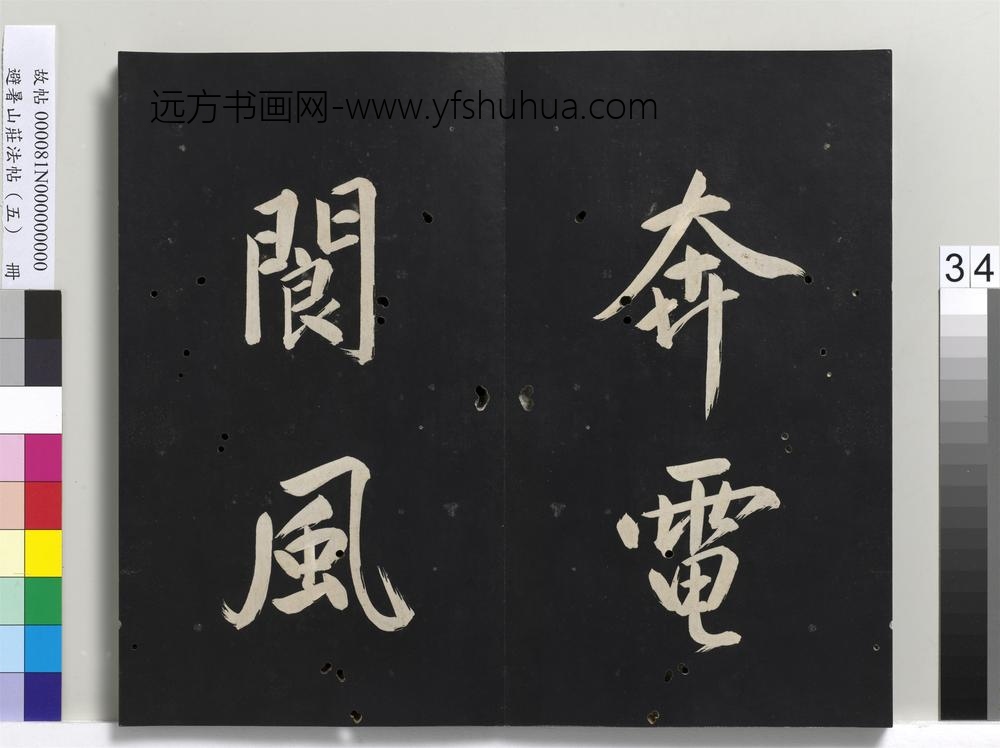 远方书画网-www.yfshuhua.com
奔電
閬風
故帖 000081N000000000
避暑山莊法帖（五） 冊
34